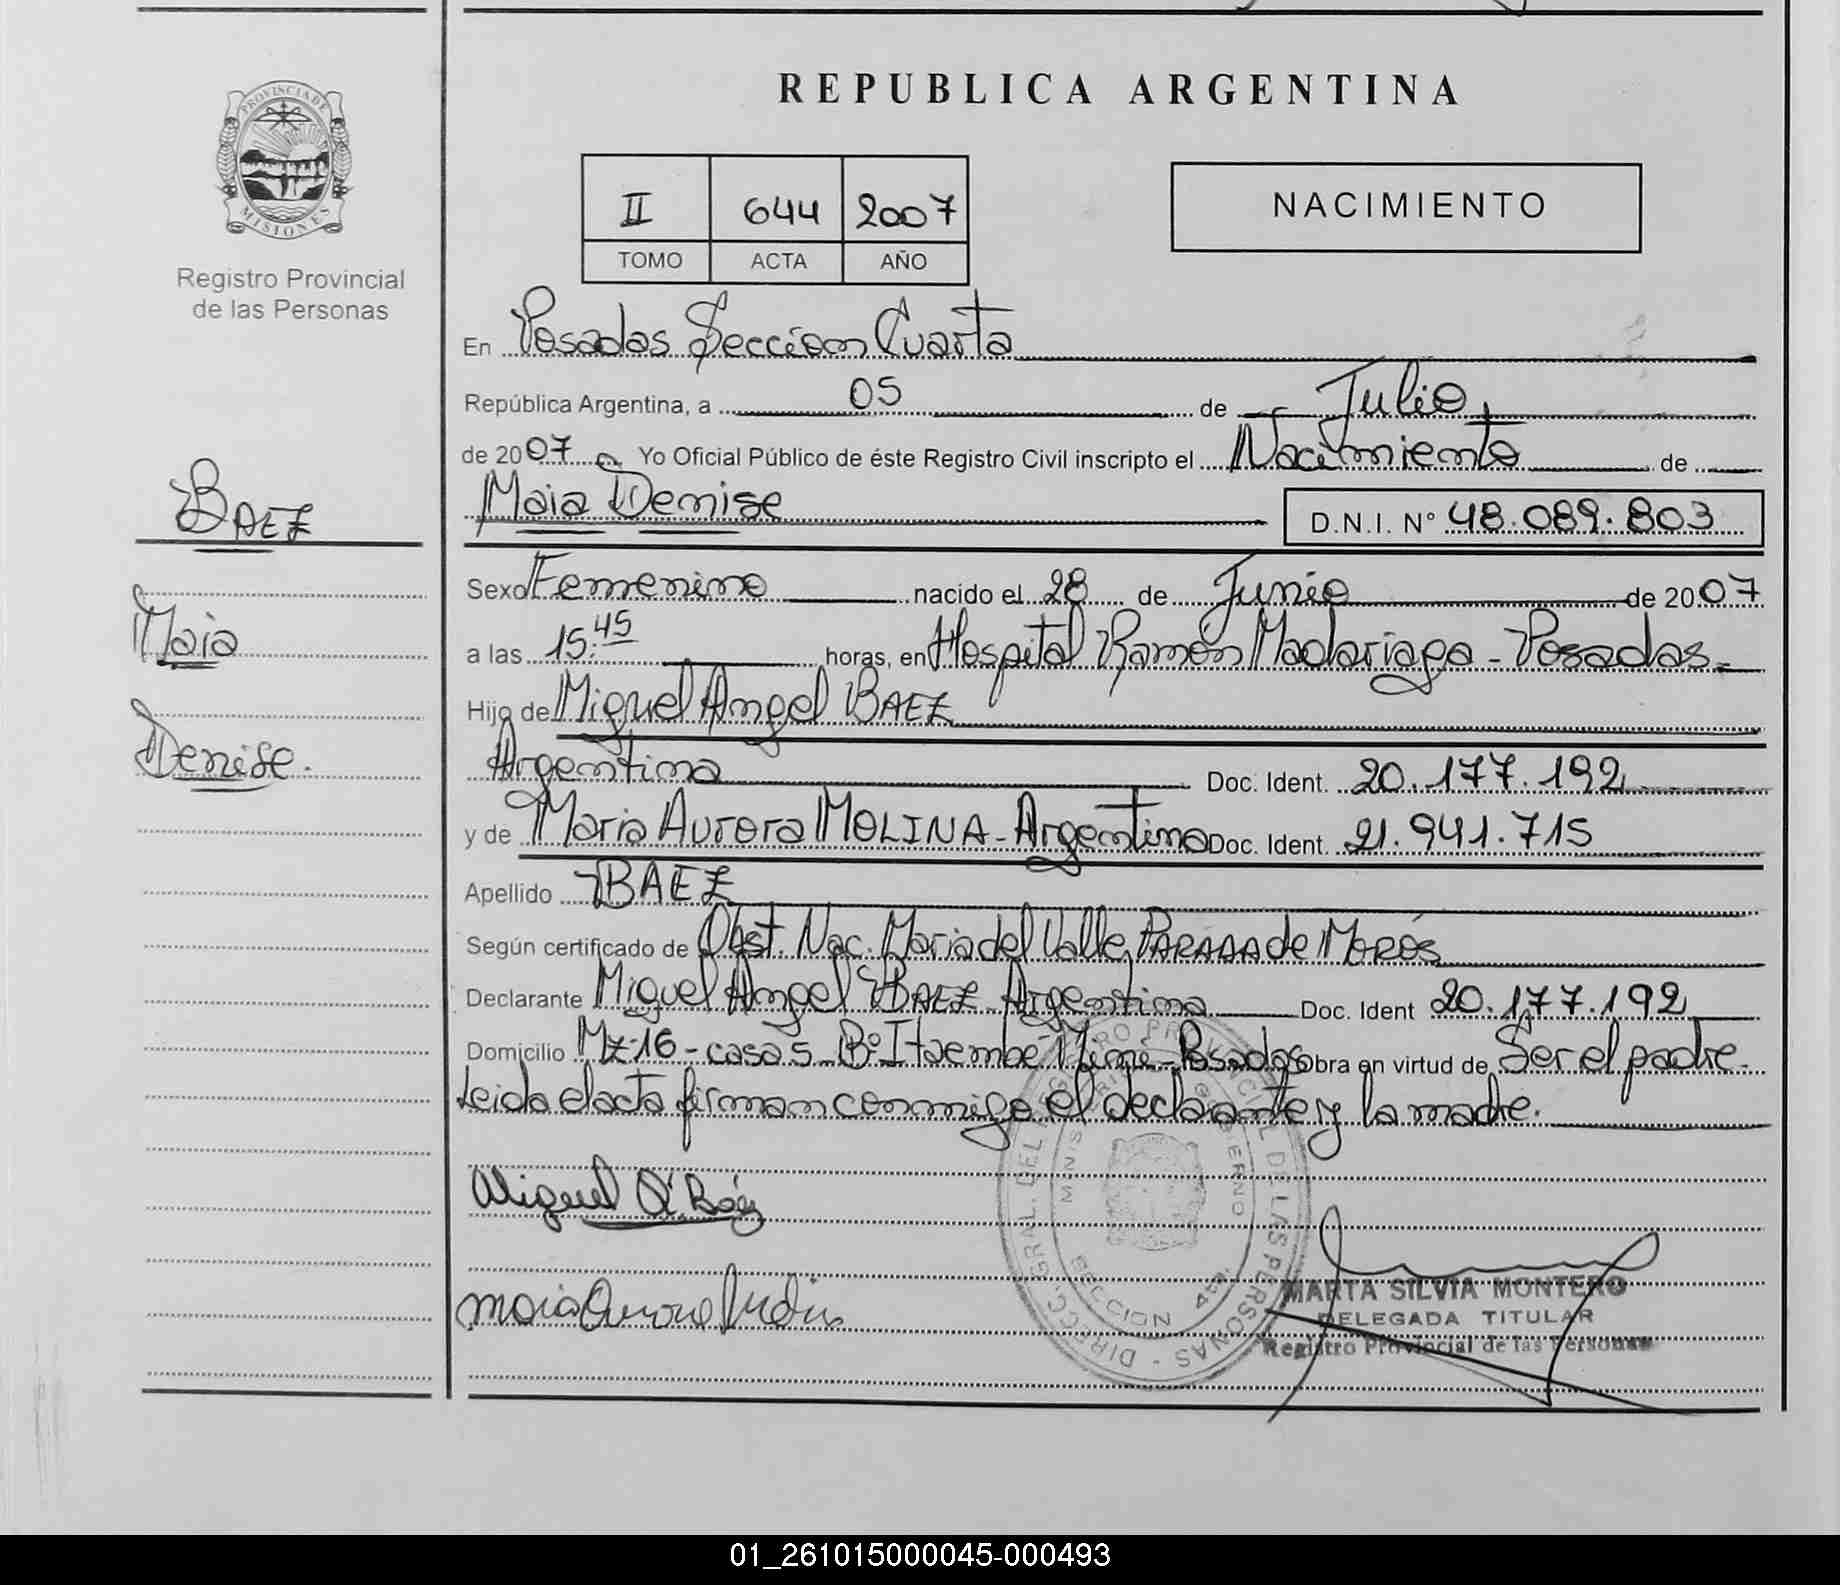 REPUBLICA ARGENTINA
PROVINCIA DE MISIONES
Registro Provincial
de las Personas
II 644 2007
TOMO ACTA AÑO
NACIMIENTO
En Posadas Seccion Cuarta
República Argentina, a 05 de Julio
de 2007 Yo Oficial Público de éste Registro Civil inscripto el Nacimiento de
Maia Denise D.N.I. N° 48.089.803
BAEZ
Maia
Denise.
Sexo Femenino nacido el 28 de Junio de 2007
a las 15:45 horas, en Hospital Ramón Madariaga - Posadas -
Hijo de Miguel Angel BAEZ
Argentina Doc. Ident. 20.177.192
y de Maria Aurora MOLINA - Argentina Doc. Ident. 21.941.715
Apellido BAEZ
Según certificado de Obst. Nac. Maria del Valle PARADA de
Declarante Miguel Angel BAEZ - Argentina Doc. Ident 20.177.192
Domicilio Mz 16 - casa 5 - B° Itaembé Mini - Posadas obra en virtud de Ser el padre -
Leida el acta firman conmigo el declarante y la madre.
Miguel A. Báez
Maria Aurora
DIRECC. GRAL. DEL REGISTRO PROVINCIAL DE LAS PERSONAS
SECCION 4ta.
MARTA SILVIA MONTERO
DELEGADA TITULAR
Registro Provincial de las Personas
01_261015000045-000493